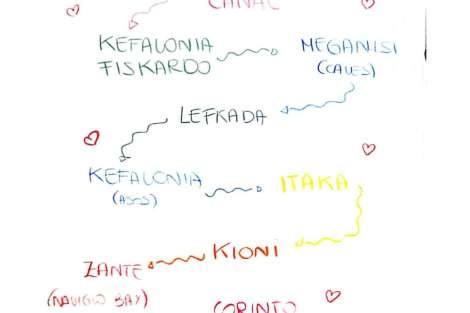 CANAL
KEFALONIA
FISKARDO
MEGANISI
(CALES)
LEFKADA
KEFALONIA
(ASOS)
ITAKA
KIONI
ZANTE
(NAVIGIO BAY)
CORINTO